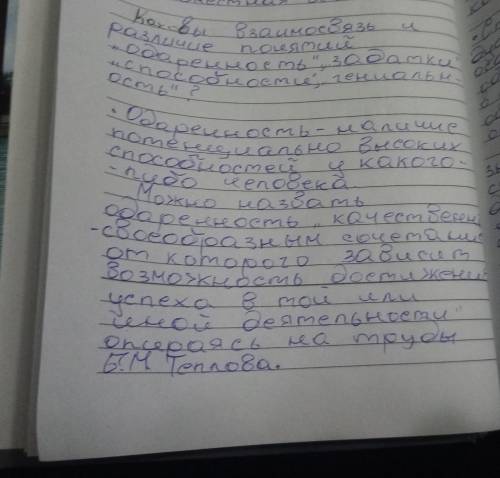 Каковы взаимосвязь и
различие понятий
"одаренность", задатки"
"способности", гениальн-
ость"?
Одаренность - наличие
потенциально высоких
способностей у какого-
-либо человека.
Можно назвать
одаренность "качественно
-своеобразным сочетание
от которого зависит
возможность достижени
успеха в той или
иной деятельности"
опираясь на труды
Б.М Теплова.